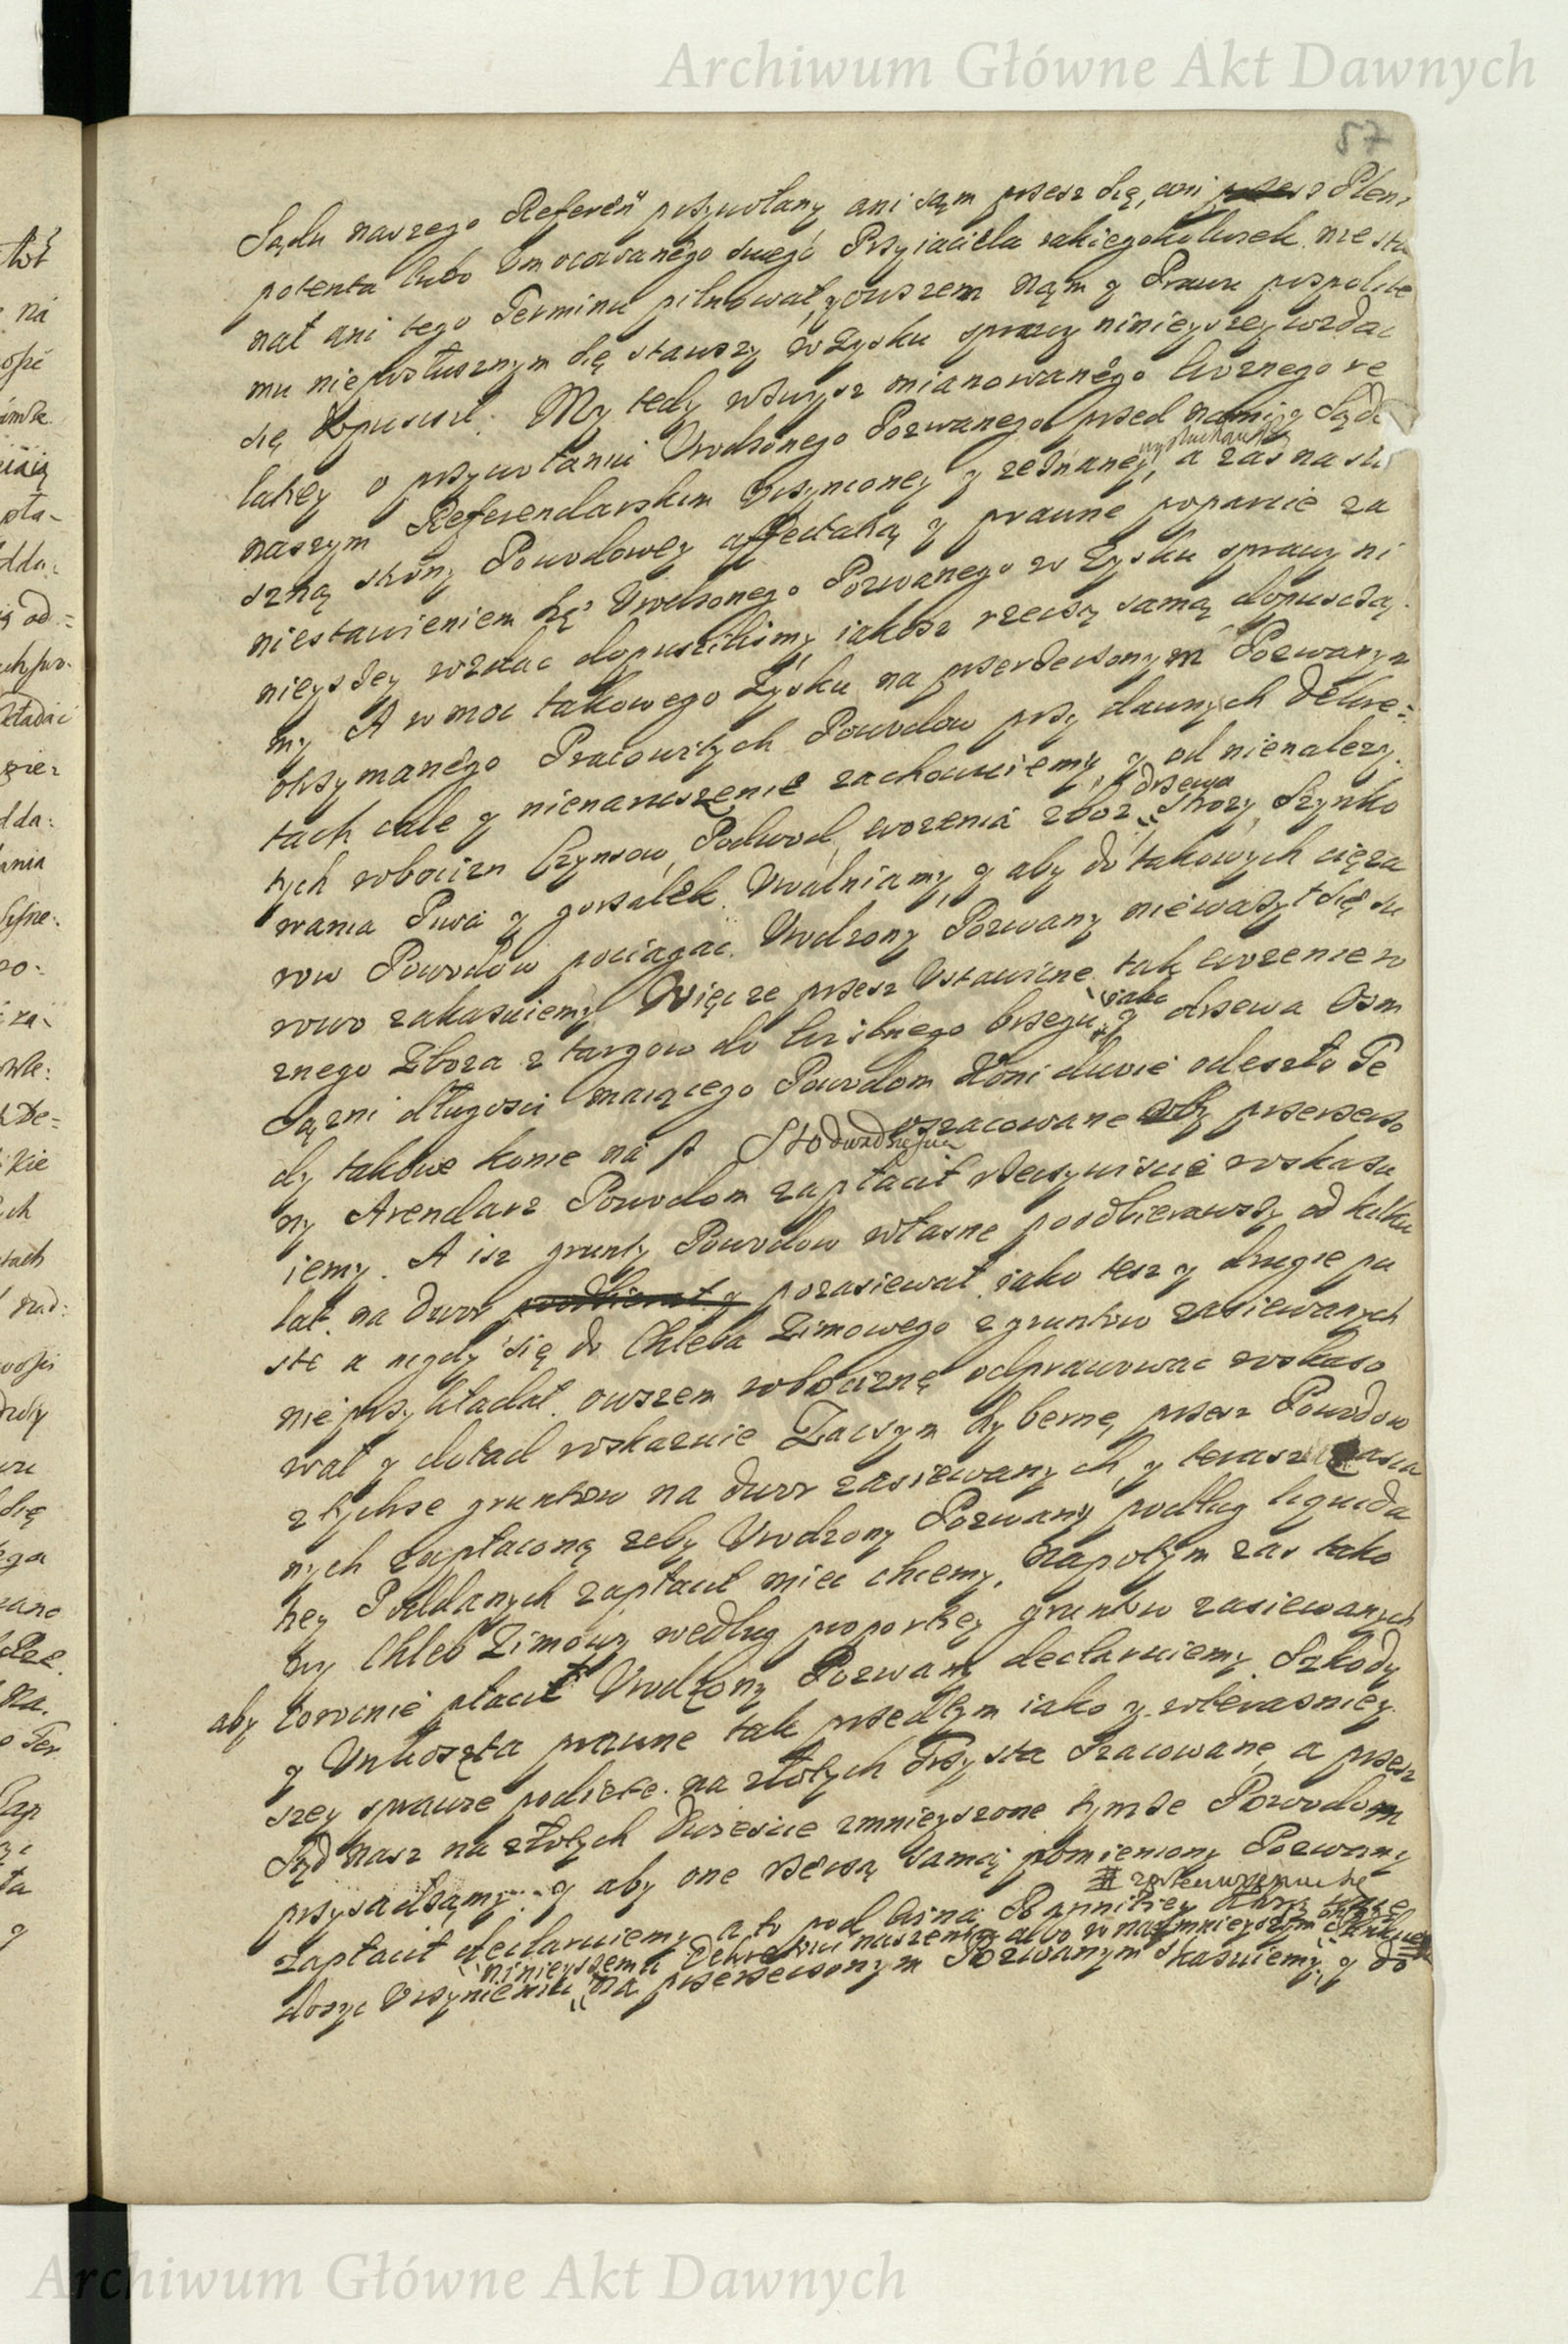 Archiwum Główne Akt Dawnych
57
Sądu naszego Referen przywołany ani sąm przez się, ani przez Pleni
potenta lubo Umocowanego swego Przyiaciela iakiegokolwiek nie sta
nął ani tego Terminu pilnował, y owszem Nąm y Prawu pospolite
mu nieposłusznym się stawszy w Zysku sprawy ninieyszey wzdac
się dopuscił. My tedy wzwysz mianowanego Wożnego re
latiey o przywołaniu Urodzonego Pozwanego przed nami y Sąde
naszym Referendarskim Uczynioney y zeznaney, wysłuchawszy a zas na słu
szną strony Powodowey affectatią y prawne poparcie za
niestawieniem się Urodzonego Pozwanego w Zysku sprawy ni
nieyszey wzdac dopuscilismy, iakosz rzeczą samą dopuszcza
my A w moc takowego Zysku na przerzeczonym Pozwanym
otrzymanego Pracowitych Powodow przy dawnych dekre=
tach cale y nienaruszenie zachowuiemy, y od nienalezy
tych robocizn Czynszow, Podwod, wozenia zboz, drzewa Strozy, Szynko
wania Piwa y gorzałek Uwalniamy, y aby do takowych cięza
row Powodow pociągac Urodzony Pozwany nieważył się su
rowo zakazuiemy Więc ze przez Ustawiczne tak wozenie ro
znego Zboza z targow do brzegu, iako y drzewa Osm
Sązni długosci maiącego Powodom Koni dwoie odeszło Te
dy takowe konie na Sto dwadziescia oszacowane aby przerzeczo
ny Arendarz Powodom zapłacił rzeczywiscie roskazu
iemy. A isz grunty Powodow własne poodbierawszy od kilku
lat na dwor poodbierał y pozasiewał iako tesz y drugie pu
ste a nigdy się do Chleba Zimowego z gruntow zasiewanych
nieprzykładał owszem robociznę odprawowac roskazo
wał y dotąd roskazuie Zaczym Hybernę przez Powodow
z tychze gruntow na dwor zasiewanych, y teraz zasia
nych zapłaconą zeby Urodzony Pozwany podług liquida
tiey Poddanych zapłacił miec chcemy. Napotym zas tako
wy Chleb Zimowy według proportiey gruntow zasiewanych
aby corocznie płacił Urodzony Pozwany declaruiemy. Szkody
y Unkoszta prawne tak przedtym iako y w teraznieÿ
szey sprawie podięte na złotych Trzysta szacowane, a przez
Sąd nasz na złotych dwiescie zmnieyszone tymze Powodom
przysadzamy y aby one rzeczą samą pomieniony Pozwany
zapłacił declaruiemy, a to pod
ninieyszemu Dekretowi naszemu albo w naymnieyszym
dosyc Uczynieniu na przerzeczonym Pozwanym skazuiemy, y do
Archiwum Główne Akt Dawnych